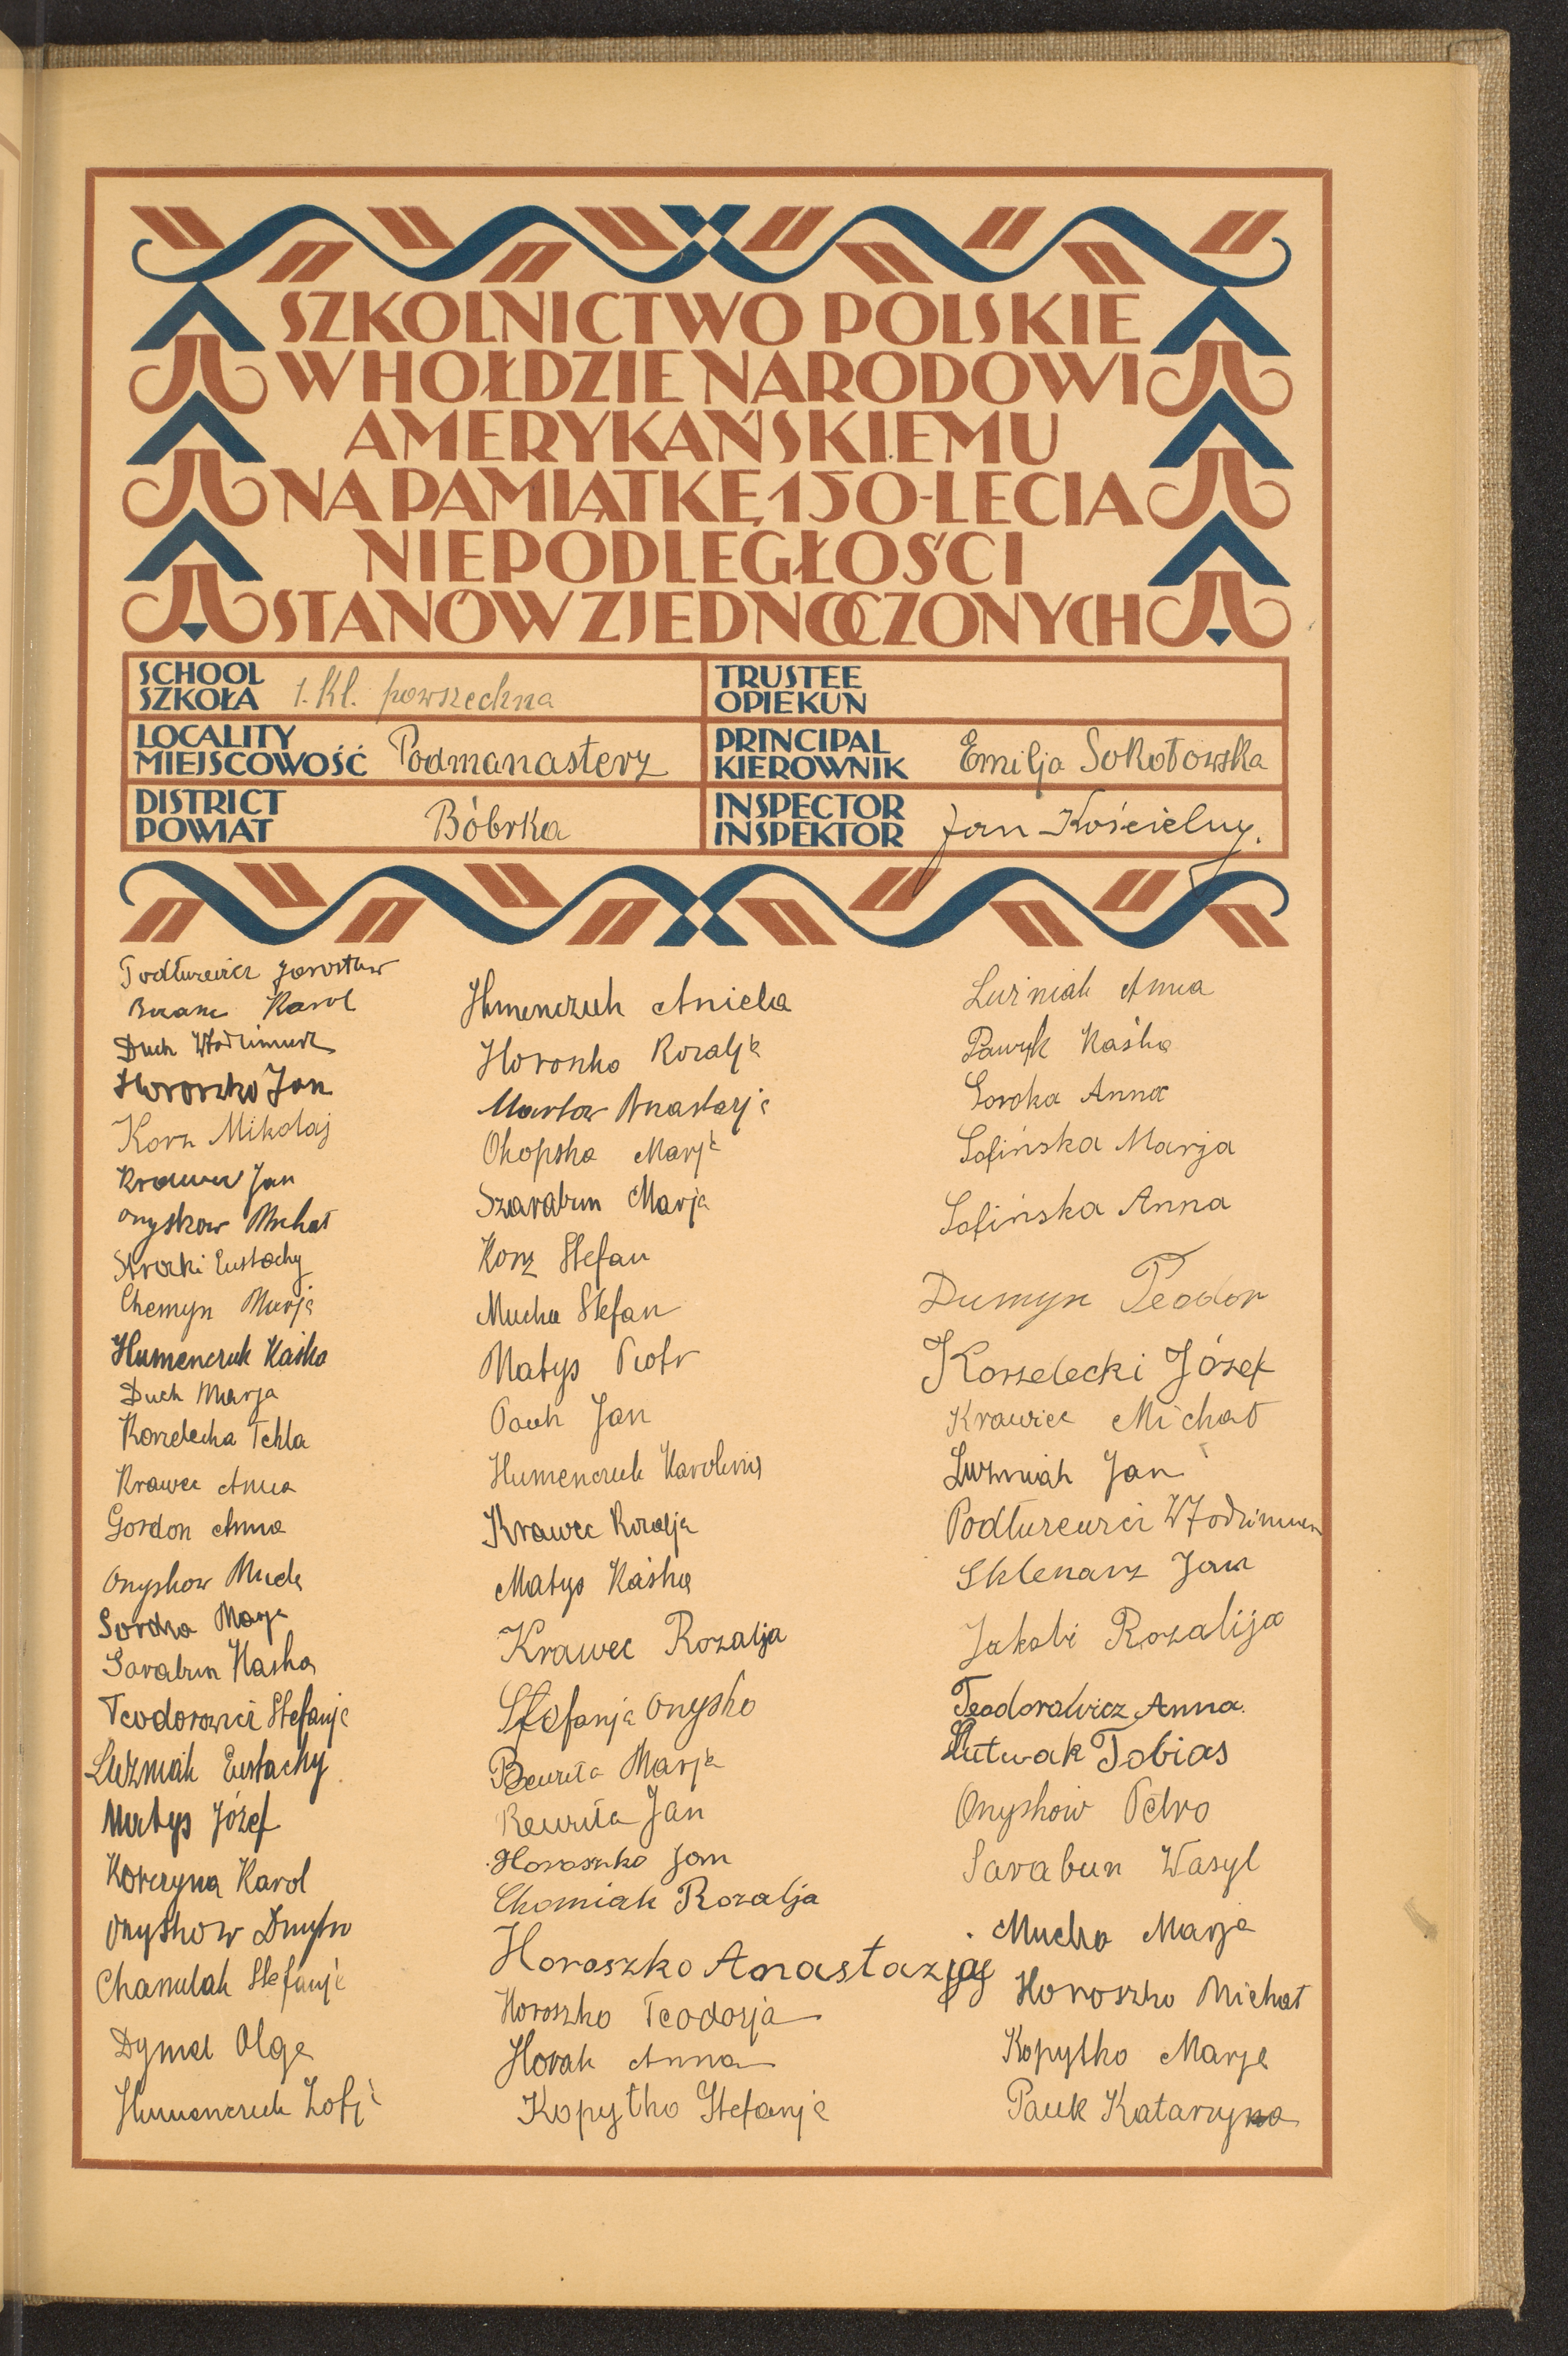 SZKOLNICTWO POLSKIE
W HOŁDZIE NARODOWI
AMERYKAŃSKIEMU
NA PAMIĄTKĘ 150-LECIA
NIEPODLEGŁOŚCI
STANÓW ZJEDNOCZONYCH
SCHOOL
SZKOŁA 1. kl. powszechna
TRUSTEE
OPIEKUN
LOCALITY
MIEJSCOWOŚĆ Podmanasterz
PRINCIPAL
KIEROWNIK Emilja Sokołowska
DISTRICT
POWIAT Bóbrka
INSPECTOR
INSPEKTOR Jan Kościelny.
Jarosław
Karol
Duch
Horoszko Jan
Korz Mikołaj
Krawec Jan
Onyskow Michał
Eustachy
Chemyn Marja
Humenczuk Kaśka
Duch Marja
Korzelecka Tekla
Krawec Anna
Gordon Anna
Onyskow
Marja
Sarabun Kaśka
Teodorowicz Stefanja
Luźniak Eustachy
Matys Józef
Korczyna Karol
Onyśkow Dmytro
Stefanja
Dymel Olga
Humenczuk Zofja
Humenczuk Aniela
Horoszko Rozalja
Anastazja
Okopska Marja
Szarabun Marja
Korz Stefan
Mucha Stefan
Matys Piotr
Pauk Jan
Humenczuk Karolina
Krawec Rozalja
Matys Kaśka
Krawec Rozalja
Stefanja Onysko
Marja
Jan
Horoszko Jan
Chomiak Rozalja
Horoszko Anastazja
Horoszko Teodozja
Horak Anna
Kopytko Stefanja
Luźniak Anna
Pawyk Kaśka
Soroka Anna
Sofińska Marja
Sofińska Anna
Dumyn Teodor
Korzelecki Józef
Krawiec Michał
Luźniak Jan
Sklenarz Jan
Jakobi Rozalija
Teodorowicz Anna.
Lutwak Tobias
Onyskow Petro
Sarabun Wasyl
Mucha Marja
Horoszko Michał
Kopytko Marja
Pauk Katarzyna